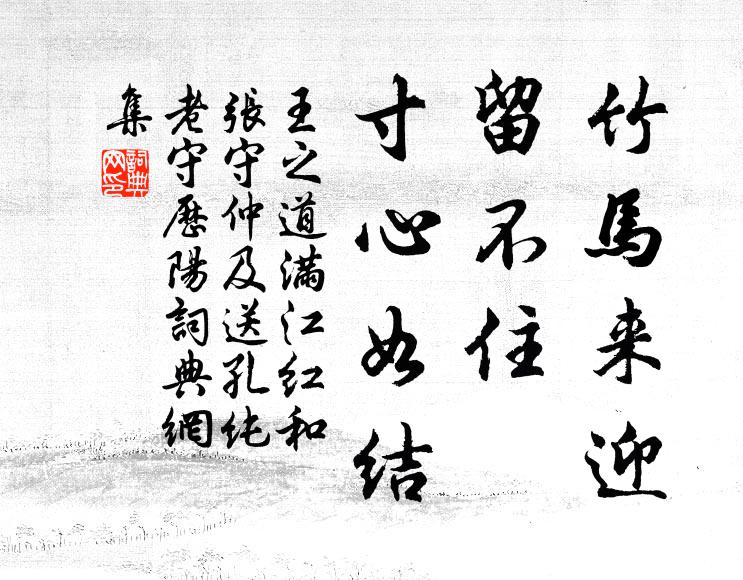 竹馬来迎
留不住
寸心如结
王之道满江红和
張守仲及送孔纯
老守歷陽詞典網
集
詞典
网印